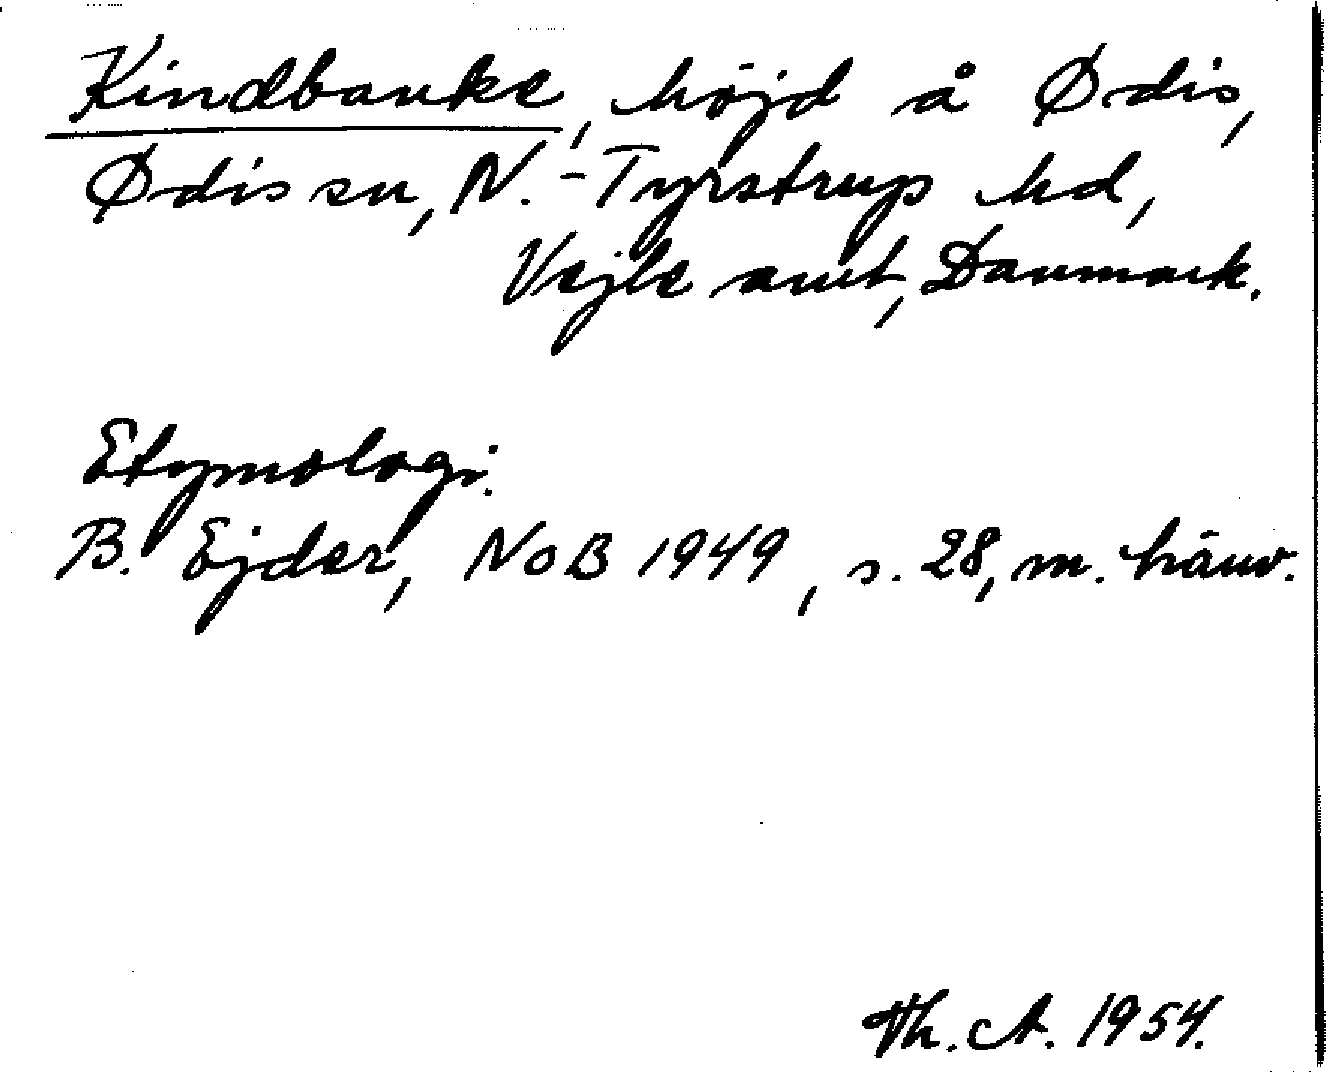 Kindbanke, höjd å Ødis,
Ødis sn, N.-Tyrstrup hd,
Vejle amt, Danmark.
Etymologi.
B. Ejder, NoB 1949, s. 28, m. hänv.
Th. A. 1954.